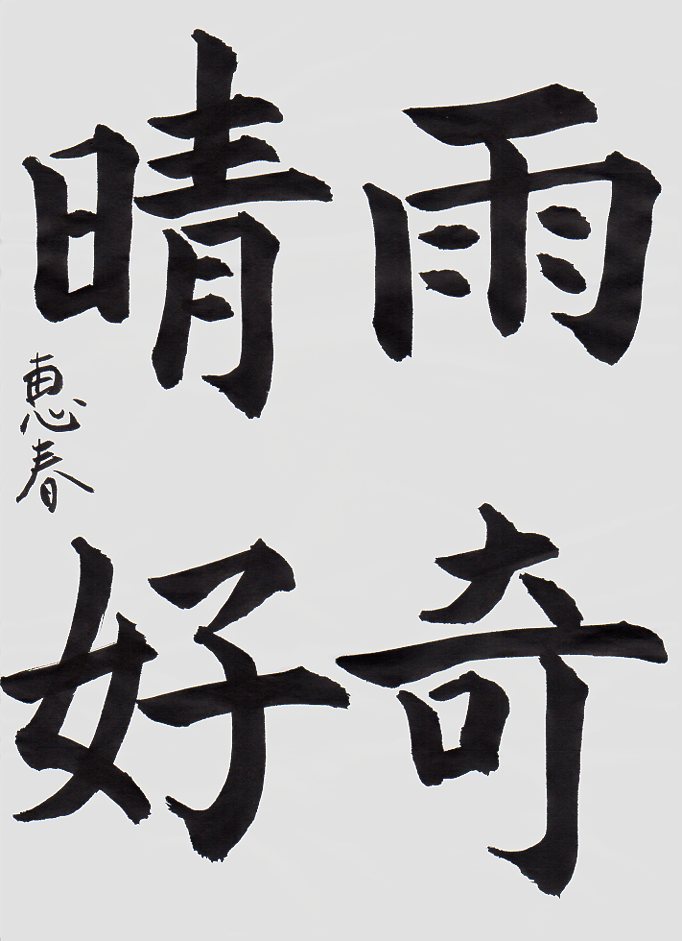 雨奇
晴好
恵春